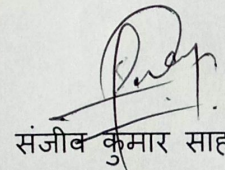 संजीव कुमार साह